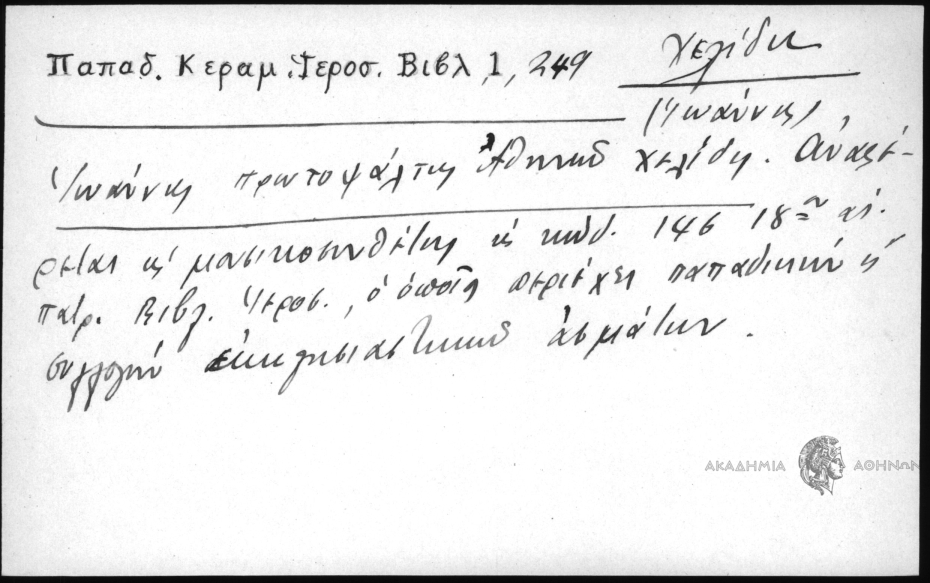 Παπαδ. Κεραμ. Ἱεροσ. Βιβλ 1, 249
Χελίδης
(Ἰωάννης)
Ἰωάννης πρωτοψάλτης Ἀθηνῶν Χελίδης. Ἀναφέ-
ρεται ὡς μουσικοσυνθέτης ἐς κώδ. 146 18ου αἰ.
πατρ. Βιβλ. Ἱεροσ., ὁ ὁποῖος περιέχει παπαδικήν ἤ
συλλογήν ἐκκλησιαστικῶν ἀσμάτων.
ΑΚΑΔΗΜΙΑ ΑΘΗΝΩΝ